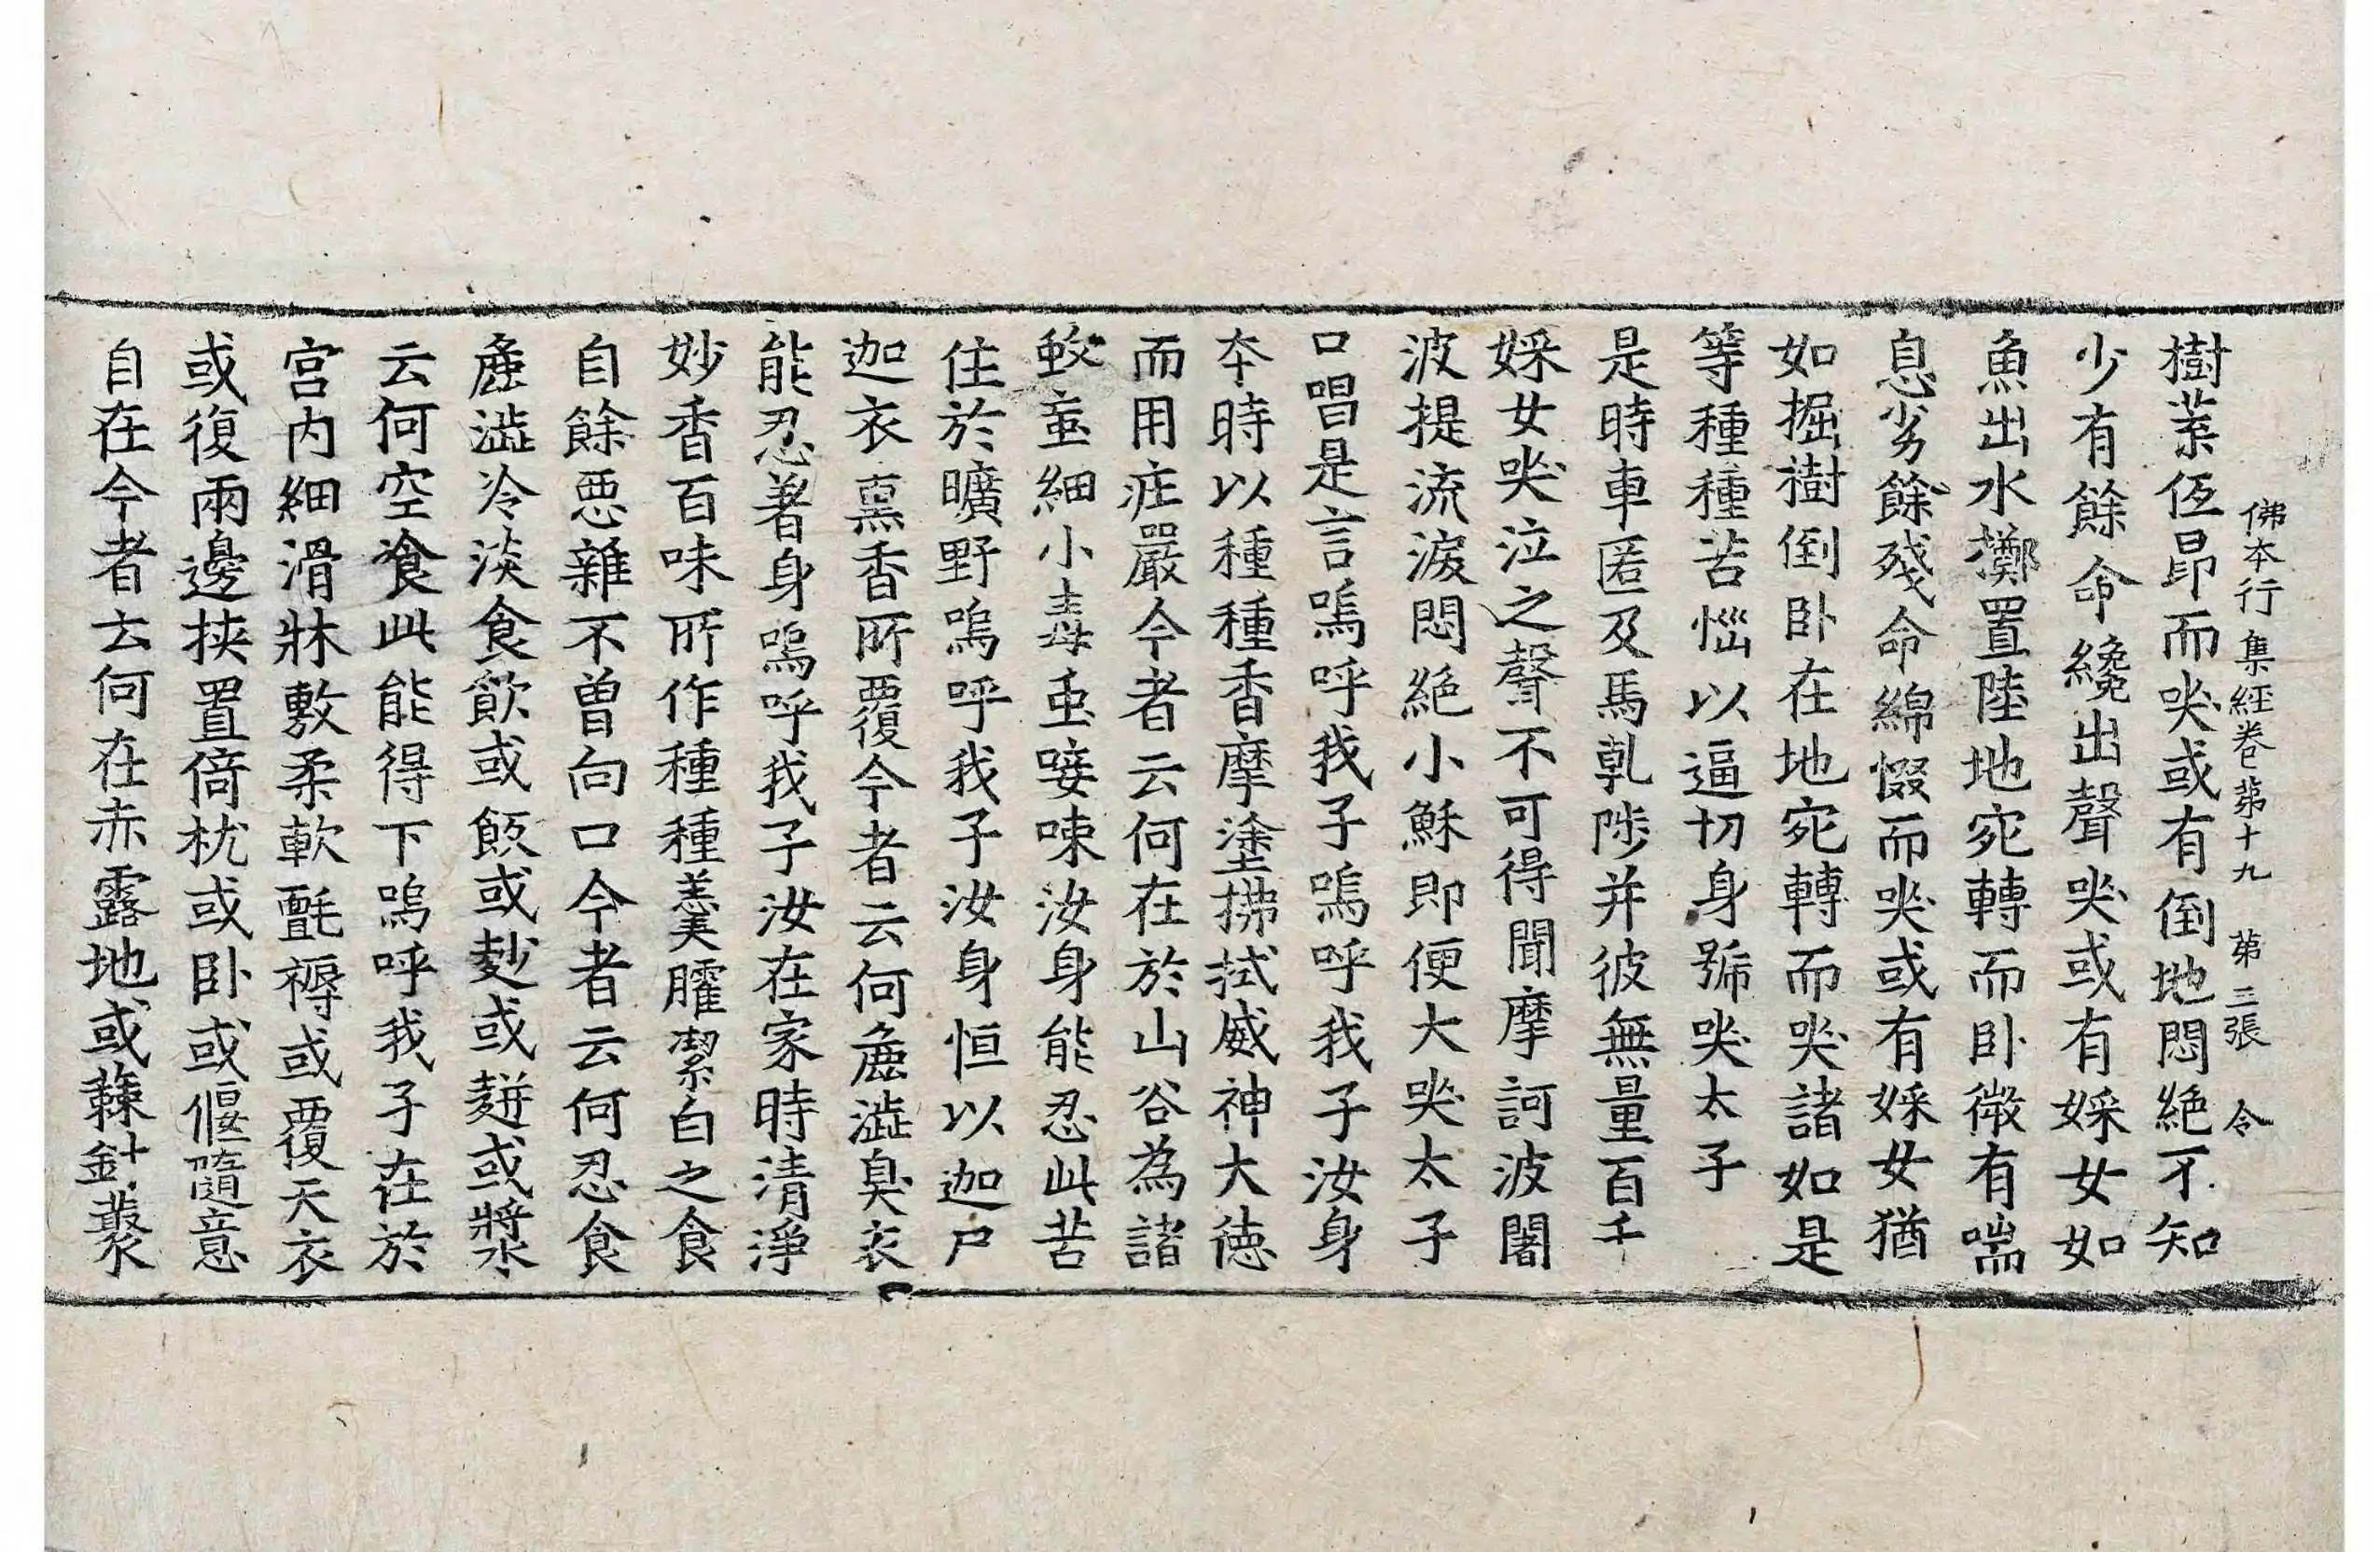 佛本行集經卷第十九 第三張 令
樹葉仾昻而哭或有倒地悶絶不知
少有餘命纔出聲哭或有婇女如
魚出水擲置陸地宛轉而卧微有喘
息劣餘殘命綿惙而哭或有婇女猶
如掘樹倒卧在地宛轉而哭諸如是
等種種苦惱以逼切身號哭太子
是時車匿及馬乹陟并彼無量百千
婇女哭泣之聲不可得聞摩訶波闍
波提流淚悶絶小穌即便大哭太子
口唱是言嗚呼我子嗚呼我子汝身
本時以種種香摩塗拂拭威神大徳
而用庄嚴今者云何在於山谷為諸
蚊䖟細小毒虫唼㖨汝身能忍此苦
住於曠野嗚呼我子汝身恒以迦尸
迦衣熏香所覆今者云何麁澁臭衣
能忍著身嗚呼我子汝在家時清淨
妙香百味所作種種羹臛潔白之食
自餘惡雜不曽向口今者云何忍食
麁澁冷淡食飲或飯或麨或䴵或漿
云何空飡此能得下嗚呼我子在於
宫内細滑牀敷柔軟㲲褥或覆天衣
或復兩邊挟置倚枕或卧或偃隨意
自在今者云何在赤露地或蕀針藂